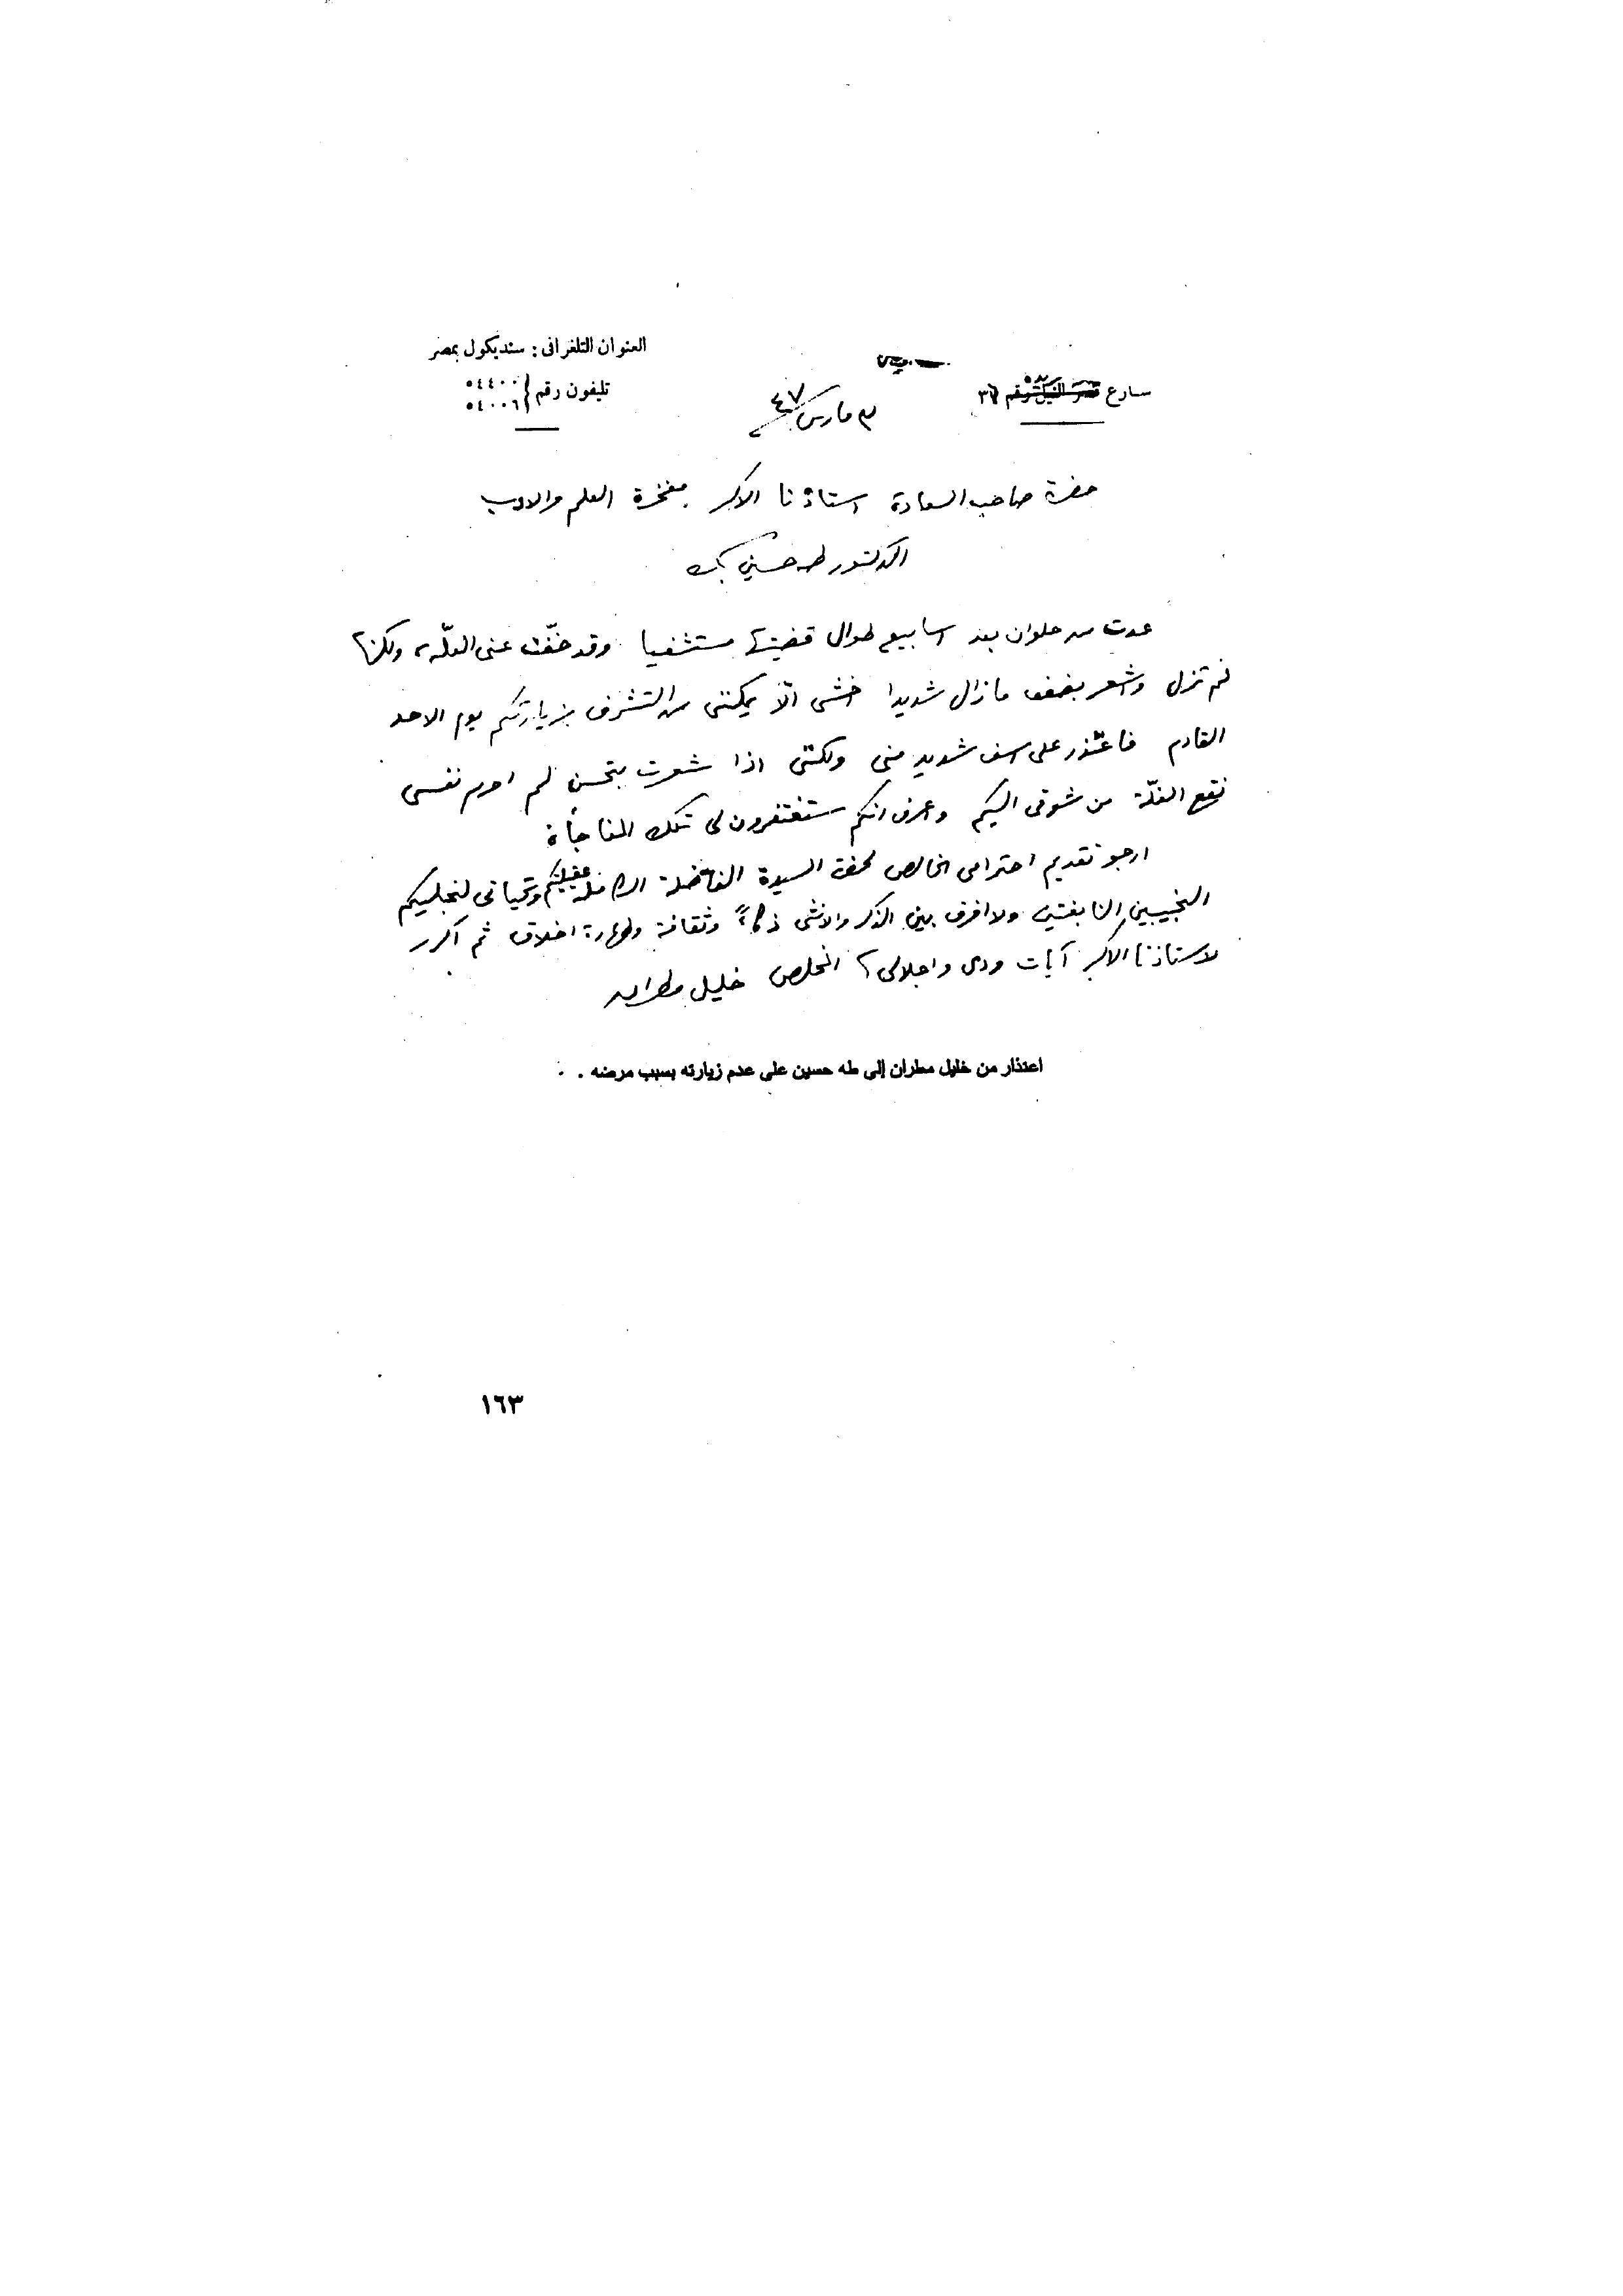 العنوان التلغرافى : سنديكول بمصر
تليفون رقم { ٥٤٤٠٠ ٥٤٠٠٦
شارع قصر النيل رقم ٣٦
مارس ٤٧
حضرة صاحب السعادة استاذنا الاكبر مفخرة العلم والادب
الدكتور طه حسين بك
عدت من حلوان بعد اسابيع طوال قضيتها مستشفيا وقد خفّت عنى العلّة، ولكنها
لم تزل واشعر بضعف ما زال شديدا اخشى الّا يمكننى من التشرف بزيارتكم يوم الاحد
القادم فاعتذر على اسف شديد منى ولكننى اذا شعرت بتحسن لم احرم نفسى
نقع الغلّة من شوقى اليكم واعرف انكم ستغتفرون لى تلك المفاجأة
ارجو تقديم احترامى الخالص لحضرة السيدة الفاضلة الكاملة عقيلتكم وتحياتى لنجليكم
النجيبين النابغتين ولا افرق بين الذكر والانثى ذكاءً وثقافة وطهارة اخلاق ثم اكرر
لاستاذنا الاكبر آيات ودى واجلالى المخلص خليل مطران
اعتذار من خليل مطران إلى طه حسين على عدم زيارته بسبب مرضه .
١٦٣